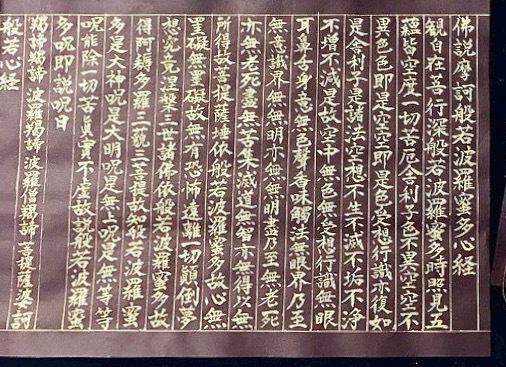 佛説摩訶般若波羅蜜多心経
観自在菩行深般若波羅蜜多時照見五
蘊皆空度一切苦厄舎利子色不異空空不
異色色即是空空即是色受想行識亦復如
是舎利子是諸法空想不生不滅不垢不浄
不増不減是故空中無色無受想行識無眼
耳鼻舌身意無色聲香味觸法無眼界乃至
無意識界無無明亦無無明盡乃至無老死
亦無老死盡無苦集滅道無智亦無得以無
所得故菩提薩埵依般若波羅蜜多故心無
罣礙無罣礙故無有恐怖遠離一切顛倒夢
想究竟涅槃三世諸佛依般若波羅蜜多故
得阿耨多羅三藐三菩提故知般若波羅蜜
多是大神呪是大明呪是無上呪是無等等
呪能除一切苦真實不虚故説般若波羅蜜
多呪即説呪曰
羯諦羯諦 波羅羯諦 波羅僧羯諦 菩提薩婆訶
般若心経